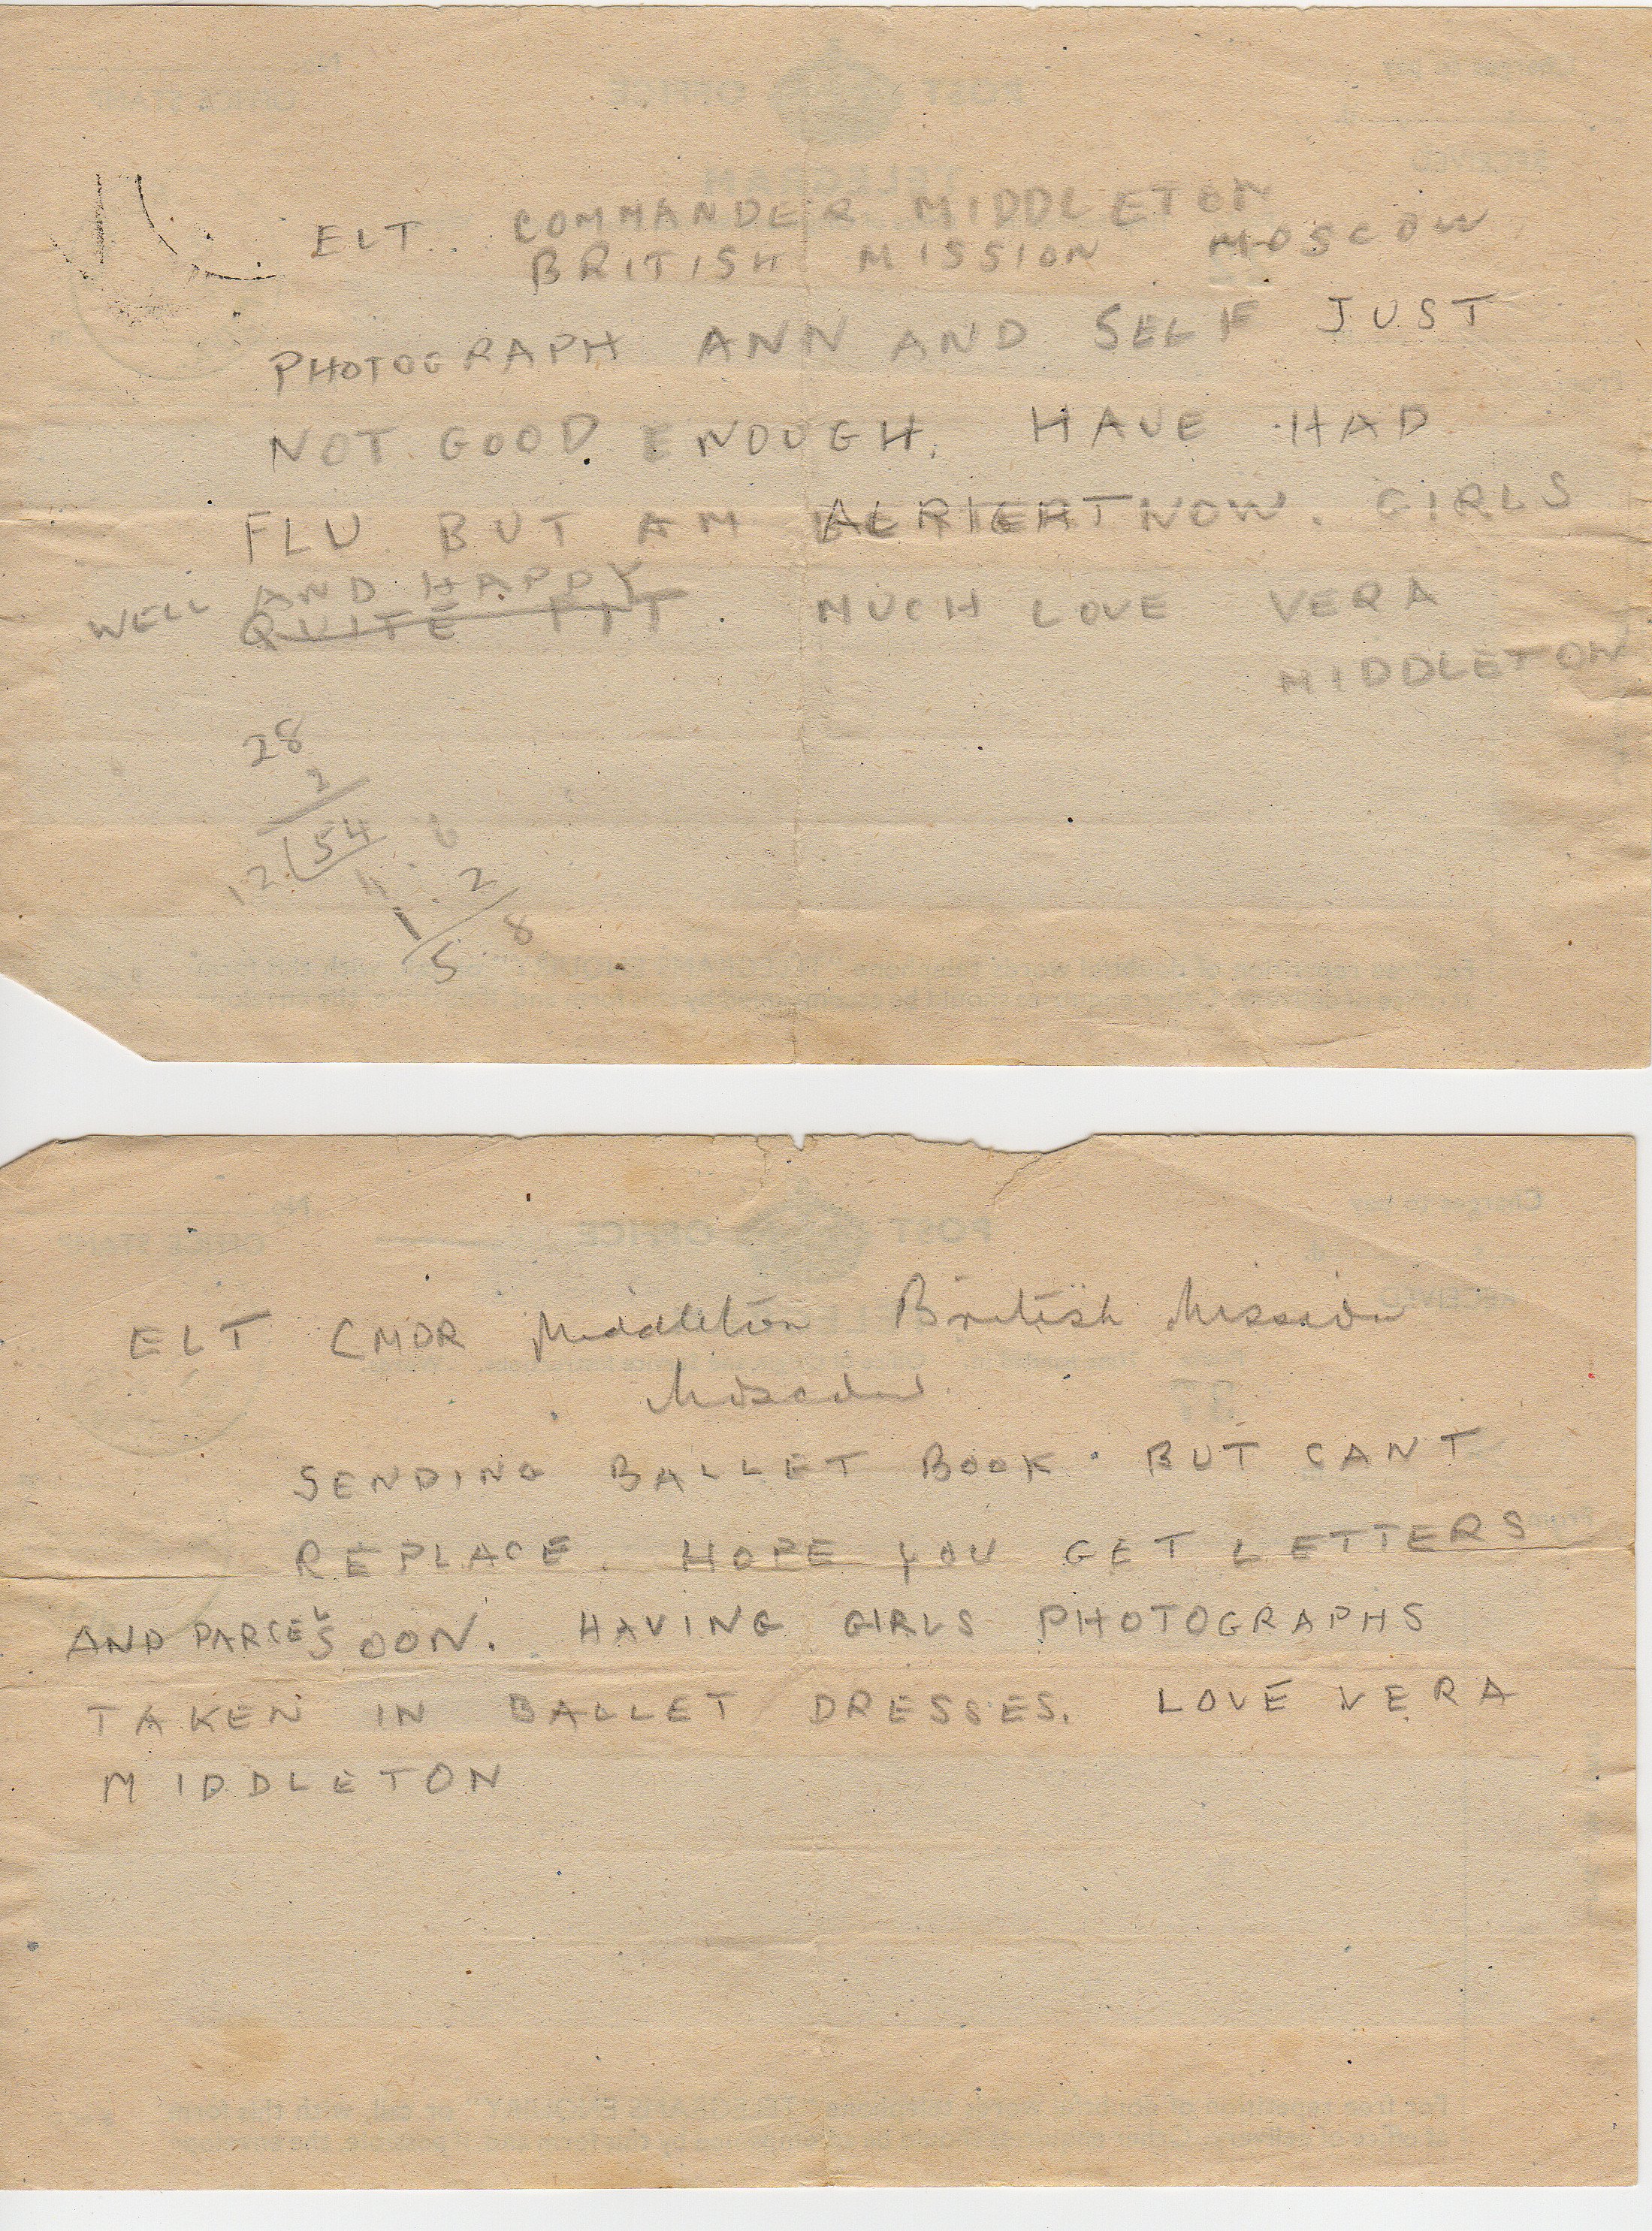 ELT. COMMANDER MIDDLETON
BRITISH MISSION MOSCOW
PHOTOGRAPH ANN AND SELF JUST
NOT GOOD ENOUGH. HAVE HAD
FLU BUT AM ALRIGHT NOW. GIRLS
WELL AND HAPPY
QUITE FIT. MUCH LOVE VERA
MIDDLETON
28
2
12 54
2
5 8
ELT CMDR Middleton British Mission
Moscow
SENDING BALLET BOOK. BUT CANT
REPLACE. HOPE YOU GET LETTERS
AND PARCEL SOON. HAVING GIRLS PHOTOGRAPHS
TAKEN IN BALLET DRESSES. LOVE VERA
MIDDLETON